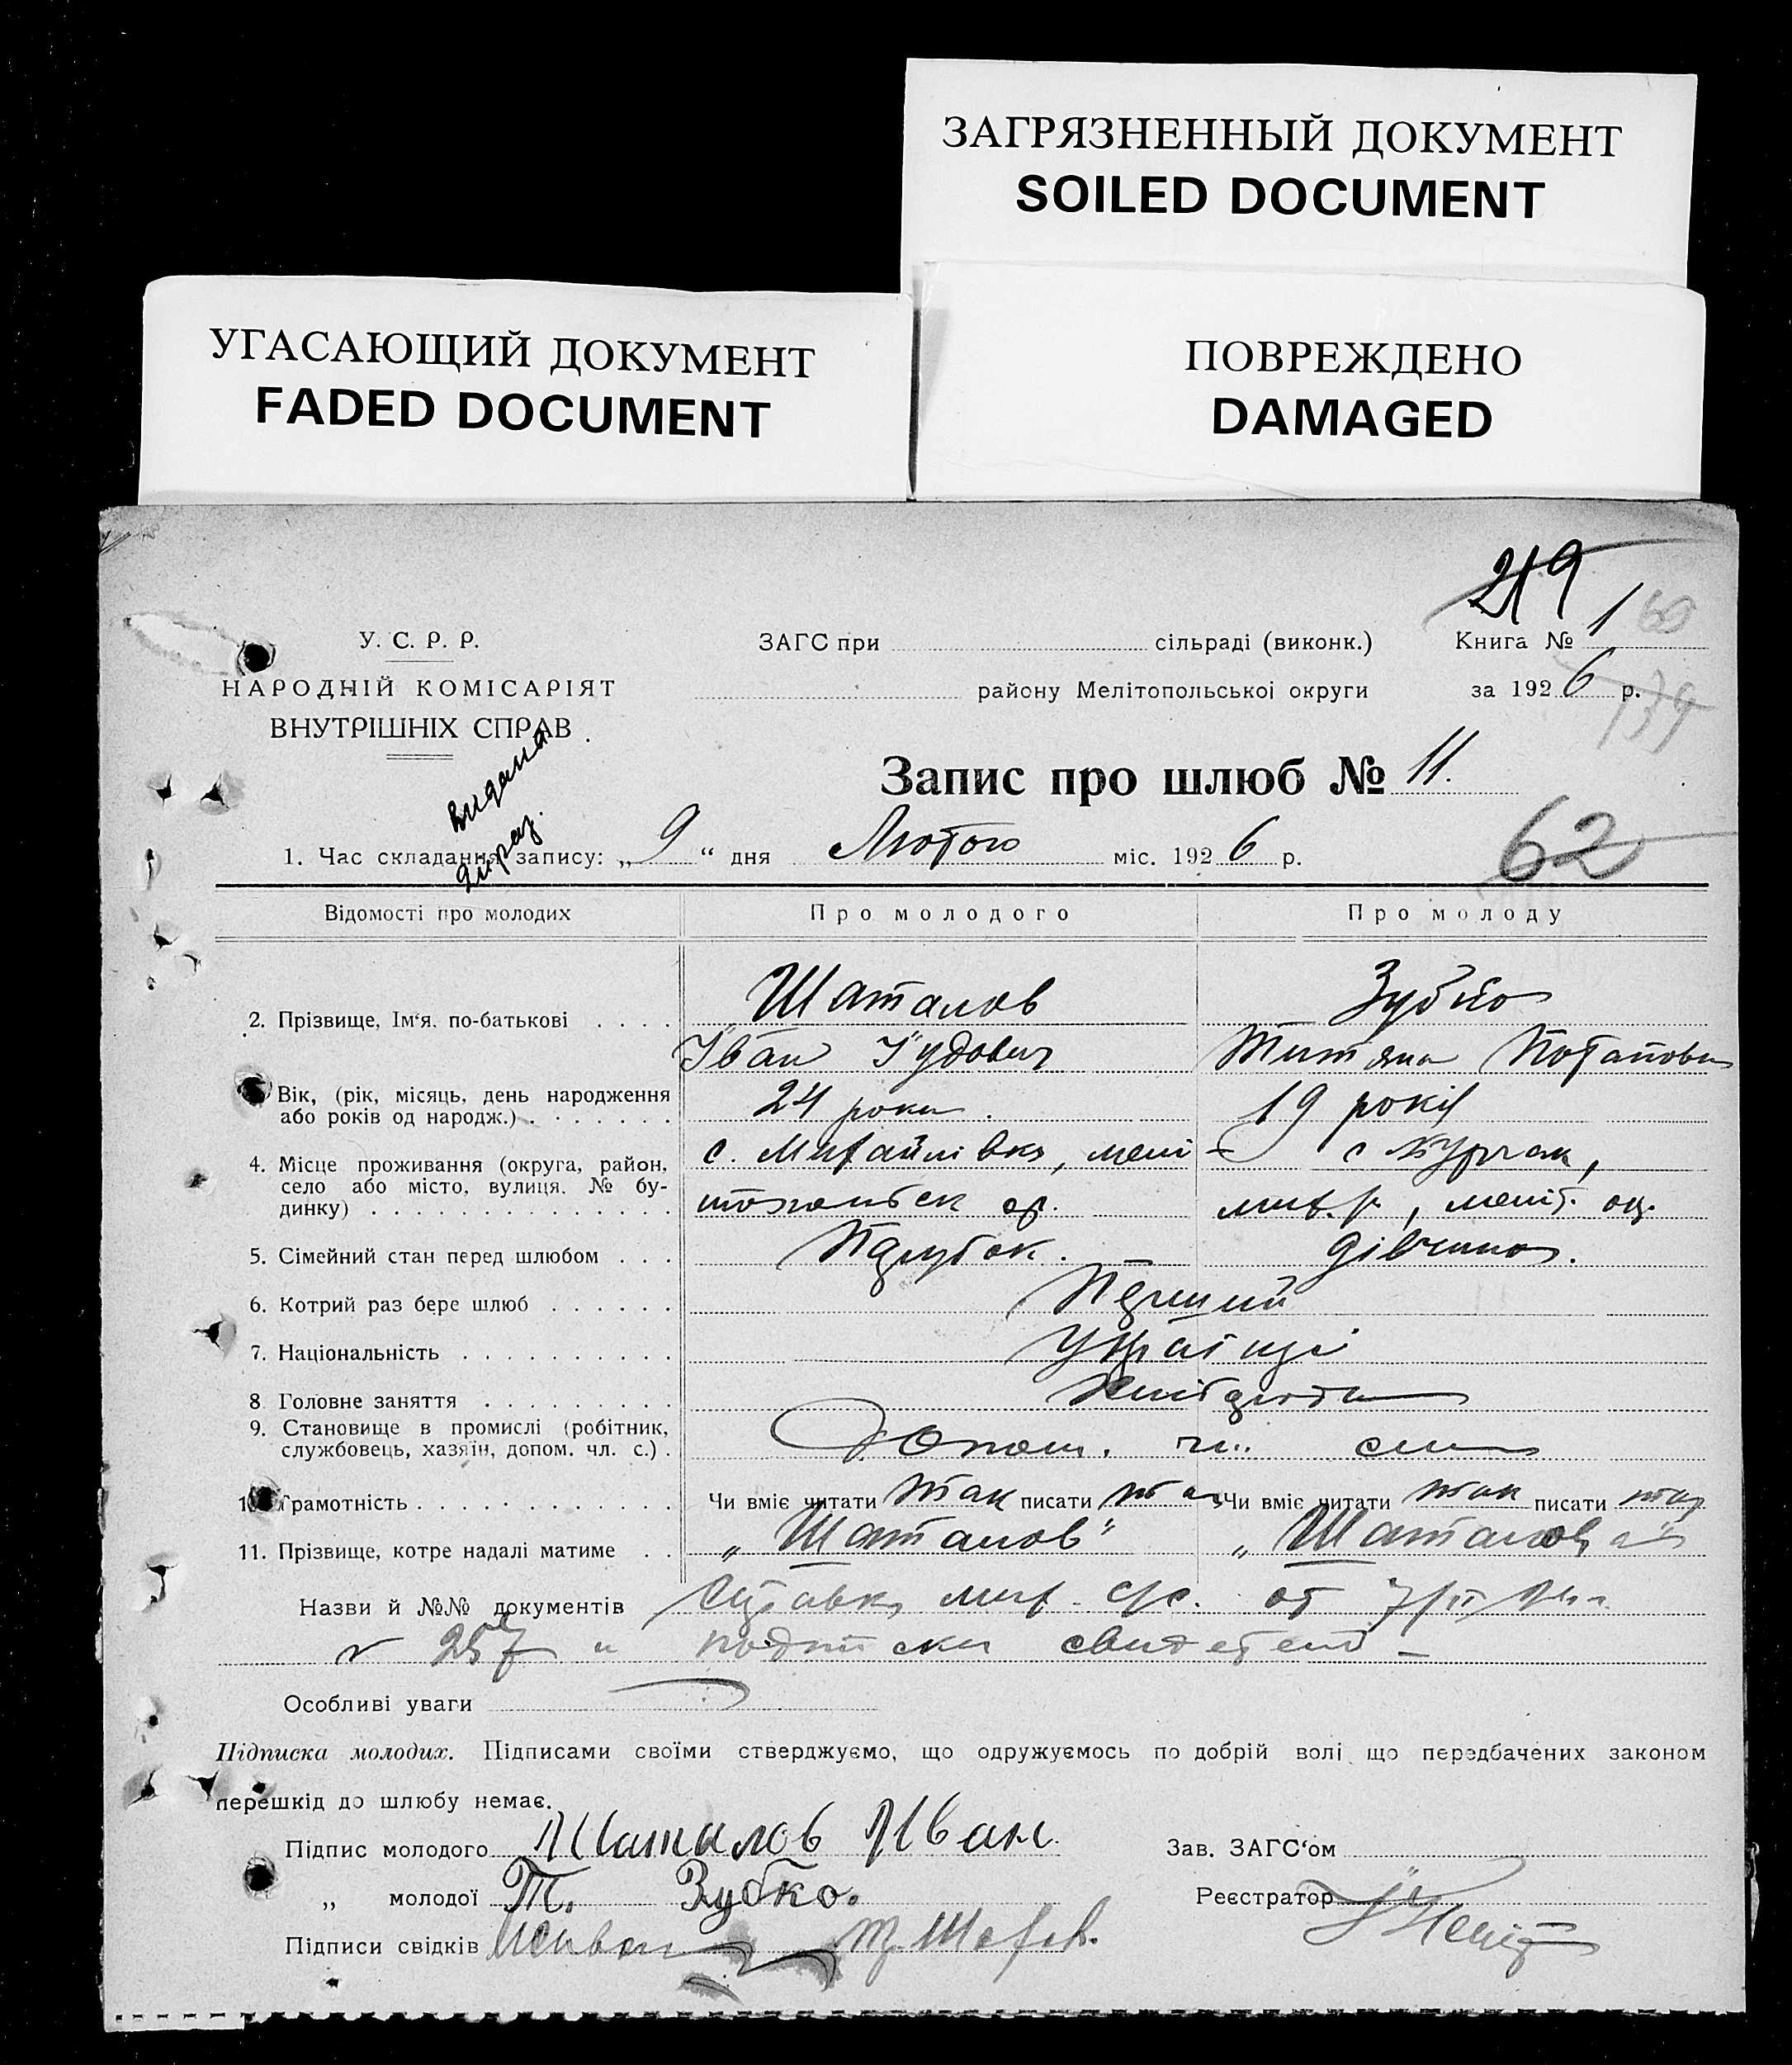 ЗАГРЯЗНЕННЫЙ ДОКУМЕНТ
SOILED DOCUMENT
УГАСАЮЩИЙ ДОКУМЕНТ
FADED DOCUMENT
ПОВРЕЖДЕНО
DAMAGED
219
У. С. Р. Р.
ЗАГС при сільраді (виконк.) Книга № 1
НАРОДНІЙ КОМІСАРІЯТ
району Мелітопольської округи за 1926 р.
ВНУТРІШНІХ СПРАВ
видана
Запис про шлюб № 11.
1. Час складання запису: „9“ дня Лютого міс. 1926 р.
62
Відомості про молодих Про молодого Про молоду
2. Прізвище, Ім‘я, по-батькові . . . . Шаталов Зубко
Іван Іудович Титяна Потаповн
Вік, (рік, місяць, день народження 24 роки. 19 років
або років од народж.) . . . . . . .
4. Місце проживання (округа, район, с. Михайлівка, мелі- с Курчак,
село або місто, вулиця, № бу- топольск ок. мих. р., меліт. ок.
динку) . . . . . . . . . . . . . .
5. Сімейний стан перед шлюбом . . . Парубок. дівчина.
6. Котрий раз бере шлюб . . . . . . Перший
7. Національність . . . . . . . . . . Українці
8. Головне заняття . . . . . . . . . Хлібороби
9. Становище в промислі (робітник,
службовець, хазяїн, допом. чл. с.) . Допом. чл. сем
Грамотність . . . . . . . . . . . . Чи вміє читати так писати так Чи вміє читати так писати так
11. Прізвище, котре надалі матиме . . „Шаталов“ „Шаталова“
Назви й №№ документів мих. с/с. от 7/II
№ 257 и подписки свидетелей –
Особливі уваги
Підписка молодих. Підписами своїми стверджуємо, що одружуємось по добрій волі що передбачених законом
перешкід до шлюбу немає.
Підпис молодого Шаталов Иван Зав. ЗАГС‘ом
„ молодої Т. Зубко. Реєстратор
Підписи свідків